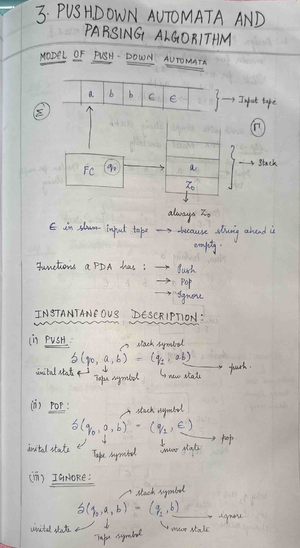 3. PUSHDOWN AUTOMATA AND
PARSING ALGORITHM
MODEL OF PUSH-DOWN AUTOMATA
a b b ϵ ϵ → Input tape
Σ Γ
FC q0 a → Stack
Z0
always Z0
ϵ in input tape → because string ahead is
empty.
Functions a PDA has : → Push
→ Pop
→ Ignore
INSTANTANEOUS DESCRIPTION:
(i) PUSH:
stack symbol
δ(q0, a, b) = (q1, ab)
initial state Tape symbol new state push
(ii) POP:
stack symbol
δ(q0, a, b) = (q1, ϵ)
initial state Tape symbol new state pop
(iii) IGNORE:
stack symbol
δ(q0, a, b) = (q1, b)
initial state Tape symbol new state ignore